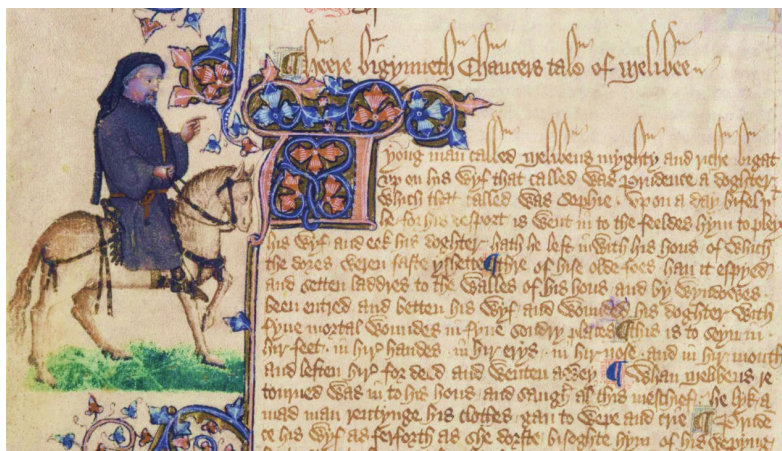 ¶ Heere bigynneth Chaucers tale of Melibee
A yong man called Melibeus myghty and riche bigat
up on his wyf that called was Prudence a doghter
Which that called was Sophie . Upon a day bifel
he for his desport is went in to the feeldes hym to pley
his wyf and eek his doghter hath he left in with his hous of which
the dores weren faste yshette ¶ Thre of hise olde foes han it espyed
and setten laddres to the walles of his hous and by wyndowes
been entred and betten his wyf and wounded his doghter with
fyve mortal woundes in fyve sondry places ¶ this is to seyn in
hir feet . in hir handes . in hir erys . in hir nose . and in hir mouth
and leften hir for deed and wenten awey ¶ Whan Melibeus re
tourned was in to his hous and saugh al this meschief . he lyk a
mad man rentynge his clothes . gan to wepe and crie ¶ Prude
ce his wyf as ferforth as she dorste bisoghte hym of his wepyng